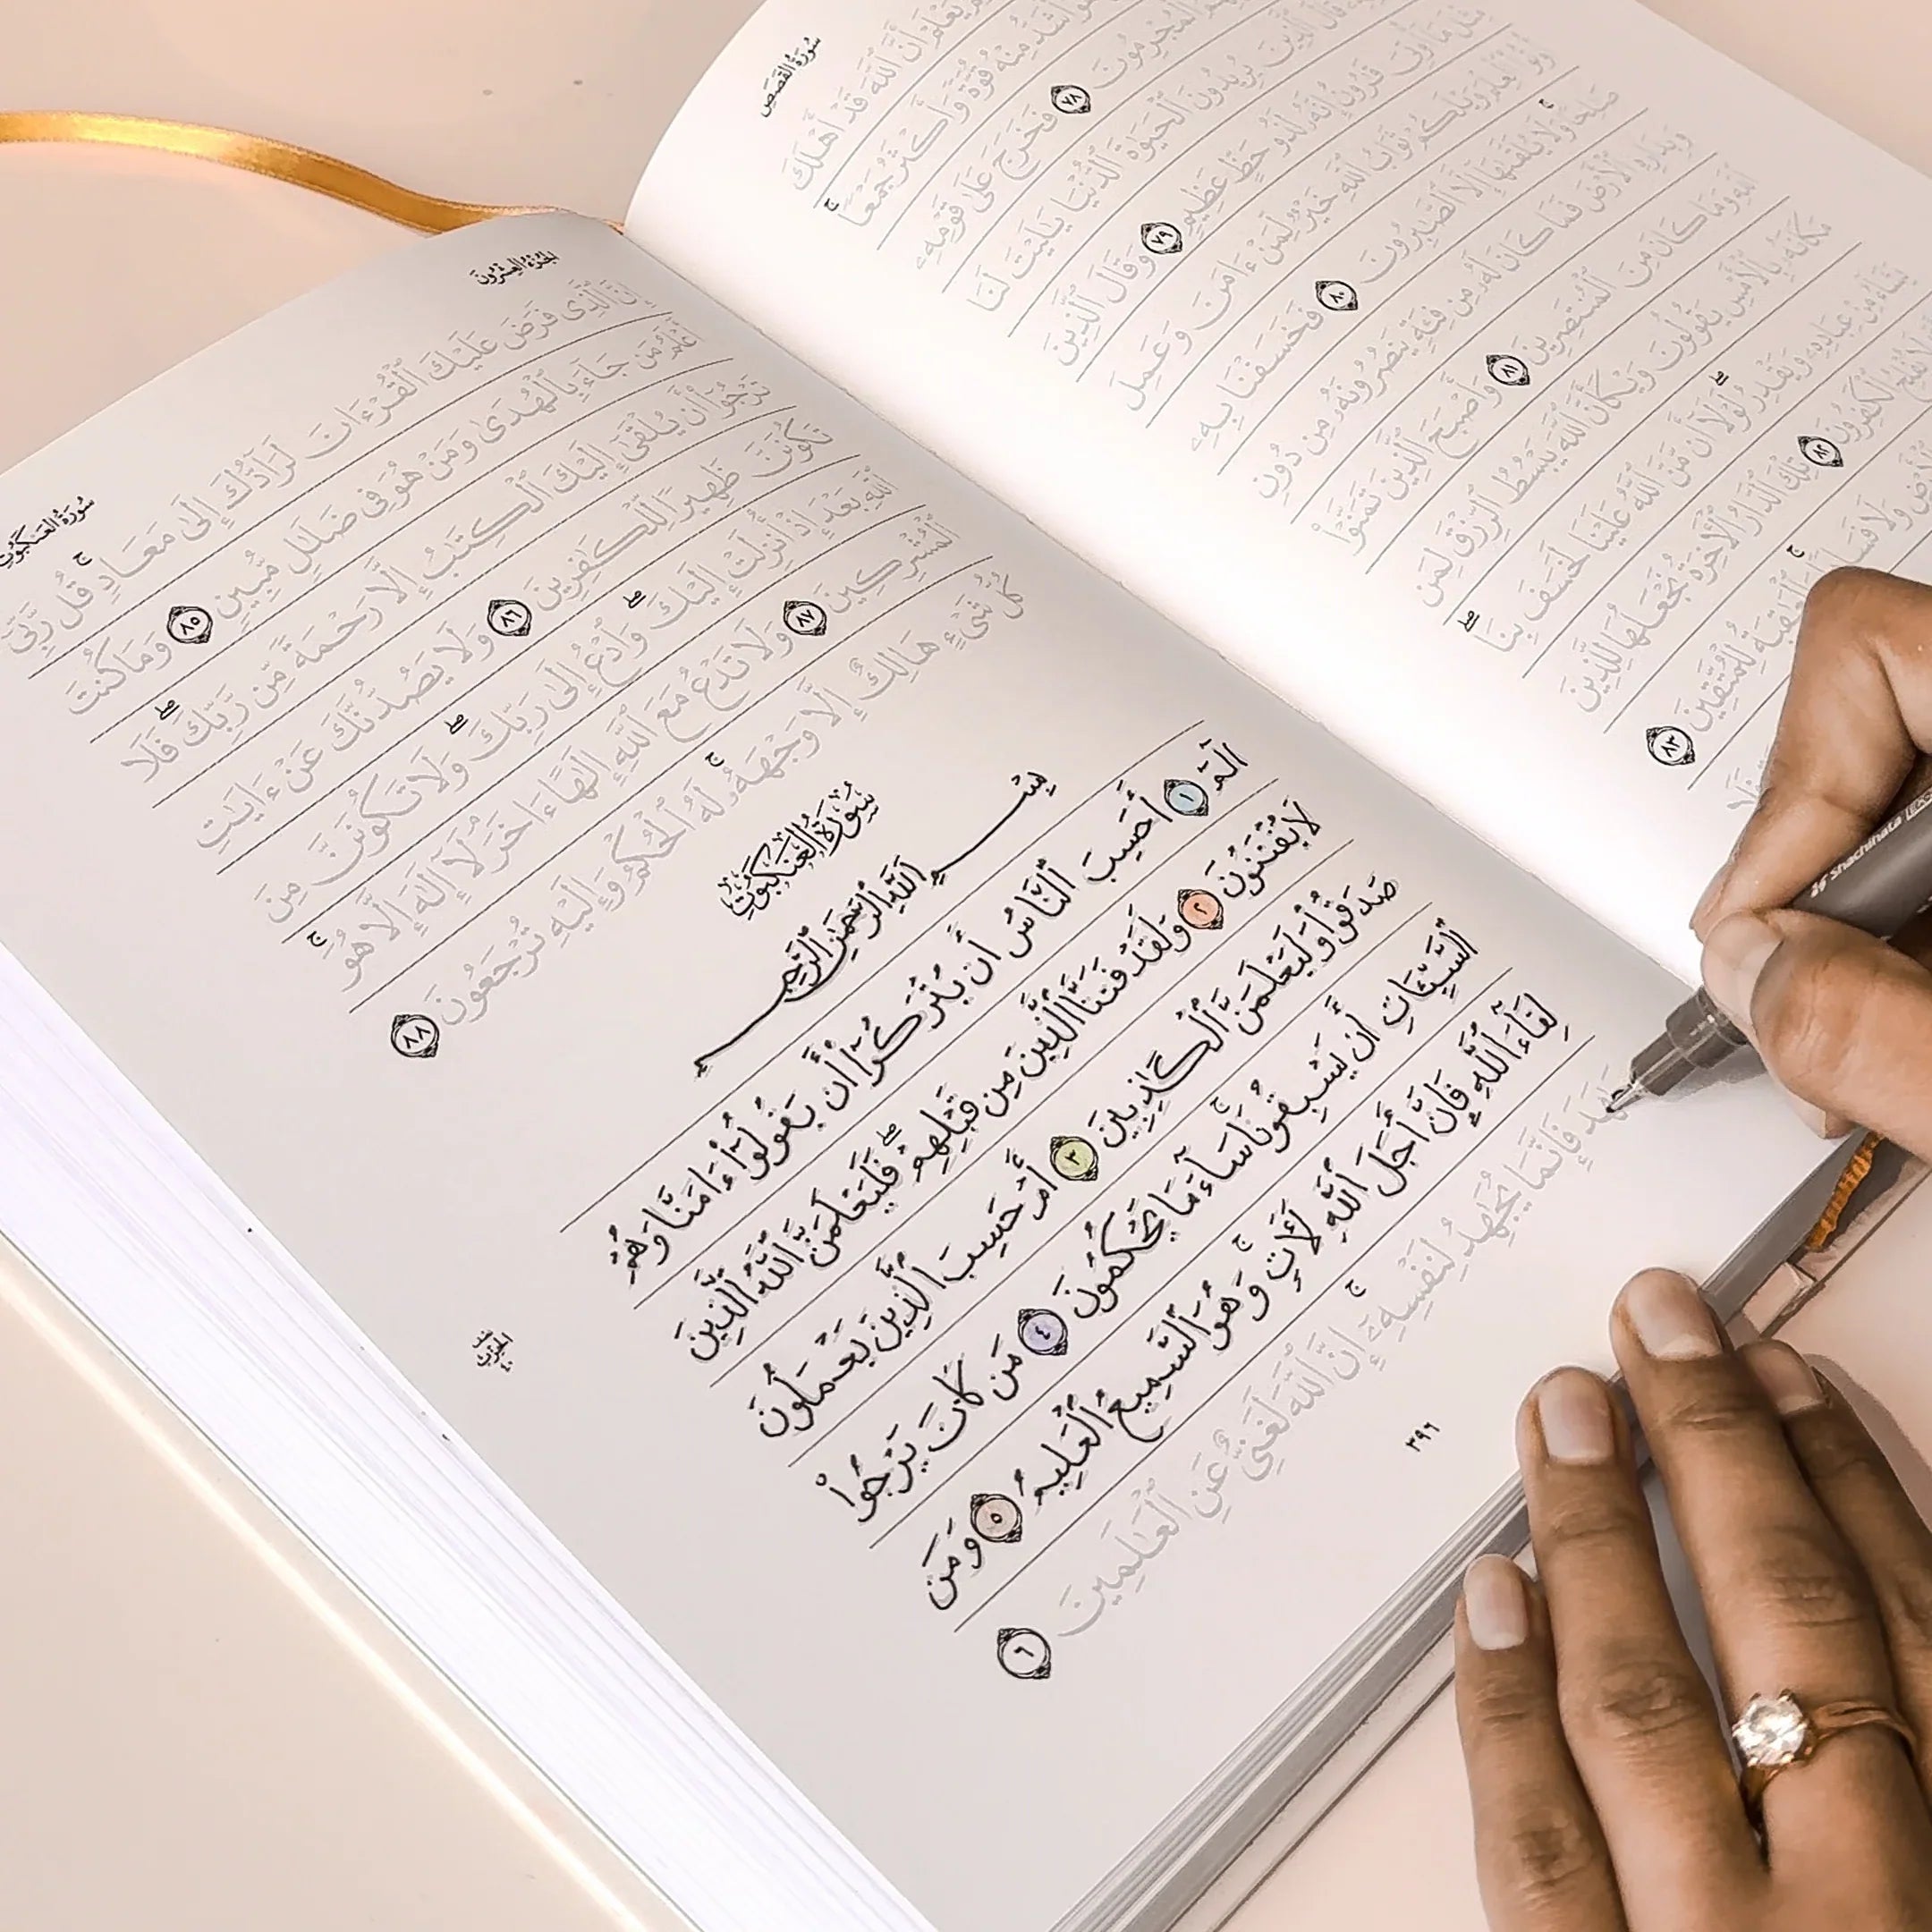 سُورَةُ القَصَصِ
يَعْلَمْ أَنَّ ٱللَّهَ قَدْ أَهْلَكَ
أَشَدُّ مِنْهُ قُوَّةً وَأَكْثَرُ جَمْعًا ۚ
ٱلْمُجْرِمُونَ ٧٨ فَخَرَجَ عَلَىٰ قَوْمِهِۦ
قَالَ ٱلَّذِينَ يُرِيدُونَ ٱلْحَيَوٰةَ ٱلدُّنْيَا يَٰلَيْتَ لَنَا
مِثْلَ مَآ أُوتِىَ قَٰرُونُ إِنَّهُۥ لَذُو حَظٍّ عَظِيمٍ ٧٩ وَقَالَ ٱلَّذِينَ
أُوتُوا۟ ٱلْعِلْمَ وَيْلَكُمْ ثَوَابُ ٱللَّهِ خَيْرٌ لِّمَنْ ءَامَنَ وَعَمِلَ
صَٰلِحًا ۚ وَلَا يُلَقَّىٰهَآ إِلَّا ٱلصَّٰبِرُونَ ٨٠ فَخَسَفْنَا بِهِۦ
وَبِدَارِهِ ٱلْأَرْضَ فَمَا كَانَ لَهُۥ مِن فِئَةٍ يَنصُرُونَهُۥ مِن دُونِ
ٱللَّهِ وَمَا كَانَ مِنَ ٱلْمُنتَصِرِينَ ٨١ وَأَصْبَحَ ٱلَّذِينَ تَمَنَّوْا۟
مَكَانَهُۥ بِٱلْأَمْسِ يَقُولُونَ وَيْكَأَنَّ ٱللَّهَ يَبْسُطُ ٱلرِّزْقَ لِمَن
يَشَآءُ مِنْ عِبَادِهِۦ وَيَقْدِرُ ۖ لَوْلَآ أَن مَّنَّ ٱللَّهُ عَلَيْنَا لَخَسَفَ بِنَا ۖ
لَا يُفْلِحُ ٱلْكَٰفِرُونَ ٨٢ تِلْكَ ٱلدَّارُ ٱلْءَاخِرَةُ نَجْعَلُهَا لِلَّذِينَ
وَلَا فَسَادًا ۚ وَٱلْعَٰقِبَةُ لِلْمُتَّقِينَ ٨٣
الجُزْءُ العِشْرُونَ
سُورَةُ العَنكَبُوتِ
إِنَّ ٱلَّذِى فَرَضَ عَلَيْكَ ٱلْقُرْءَانَ لَرَآدُّكَ إِلَىٰ مَعَادٍ ۚ قُل رَّبِّىٓ
أَعْلَمُ مَن جَآءَ بِٱلْهُدَىٰ وَمَنْ هُوَ فِى ضَلَٰلٍ مُّبِينٍ ٨٥ وَمَا كُنتَ
تَرْجُوٓا۟ أَن يُلْقَىٰٓ إِلَيْكَ ٱلْكِتَٰبُ إِلَّا رَحْمَةً مِّن رَّبِّكَ ۖ فَلَا
تَكُونَنَّ ظَهِيرًا لِّلْكَٰفِرِينَ ٨٦ وَلَا يَصُدُّنَّكَ عَنْ ءَايَٰتِ
ٱللَّهِ بَعْدَ إِذْ أُنزِلَتْ إِلَيْكَ ۖ وَٱدْعُ إِلَىٰ رَبِّكَ ۖ وَلَا تَكُونَنَّ مِنَ
ٱلْمُشْرِكِينَ ٨٧ وَلَا تَدْعُ مَعَ ٱللَّهِ إِلَٰهًا ءَاخَرَ ۘ لَآ إِلَٰهَ إِلَّا هُوَ ۚ
كُلُّ شَىْءٍ هَالِكٌ إِلَّا وَجْهَهُۥ ۚ لَهُ ٱلْحُكْمُ وَإِلَيْهِ تُرْجَعُونَ ٨٨
سُورَةُ العَنكَبُوتِ
بِسْمِ ٱللَّهِ ٱلرَّحْمَٰنِ ٱلرَّحِيمِ
الٓمٓ ١ أَحَسِبَ ٱلنَّاسُ أَن يُتْرَكُوٓا۟ أَن يَقُولُوٓا۟ ءَامَنَّا وَهُمْ
لَا يُفْتَنُونَ ٢ وَلَقَدْ فَتَنَّا ٱلَّذِينَ مِن قَبْلِهِمْ ۖ فَلَيَعْلَمَنَّ ٱللَّهُ ٱلَّذِينَ
صَدَقُوا۟ وَلَيَعْلَمَنَّ ٱلْكَٰذِبِينَ ٣ أَمْ حَسِبَ ٱلَّذِينَ يَعْمَلُونَ
ٱلسَّيِّـَٔاتِ أَن يَسْبِقُونَا ۚ سَآءَ مَا يَحْكُمُونَ ٤ مَن كَانَ يَرْجُوا۟
لِقَآءَ ٱللَّهِ فَإِنَّ أَجَلَ ٱللَّهِ لَءَاتٍ ۚ وَهُوَ ٱلسَّمِيعُ ٱلْعَلِيمُ ٥ وَمَن
جَٰهَدَ فَإِنَّمَا يُجَٰهِدُ لِنَفْسِهِۦٓ ۚ إِنَّ ٱللَّهَ لَغَنِىٌّ عَنِ ٱلْعَٰلَمِينَ ٦
الحِزْب
٤٠
٣٩٦
Shachihata